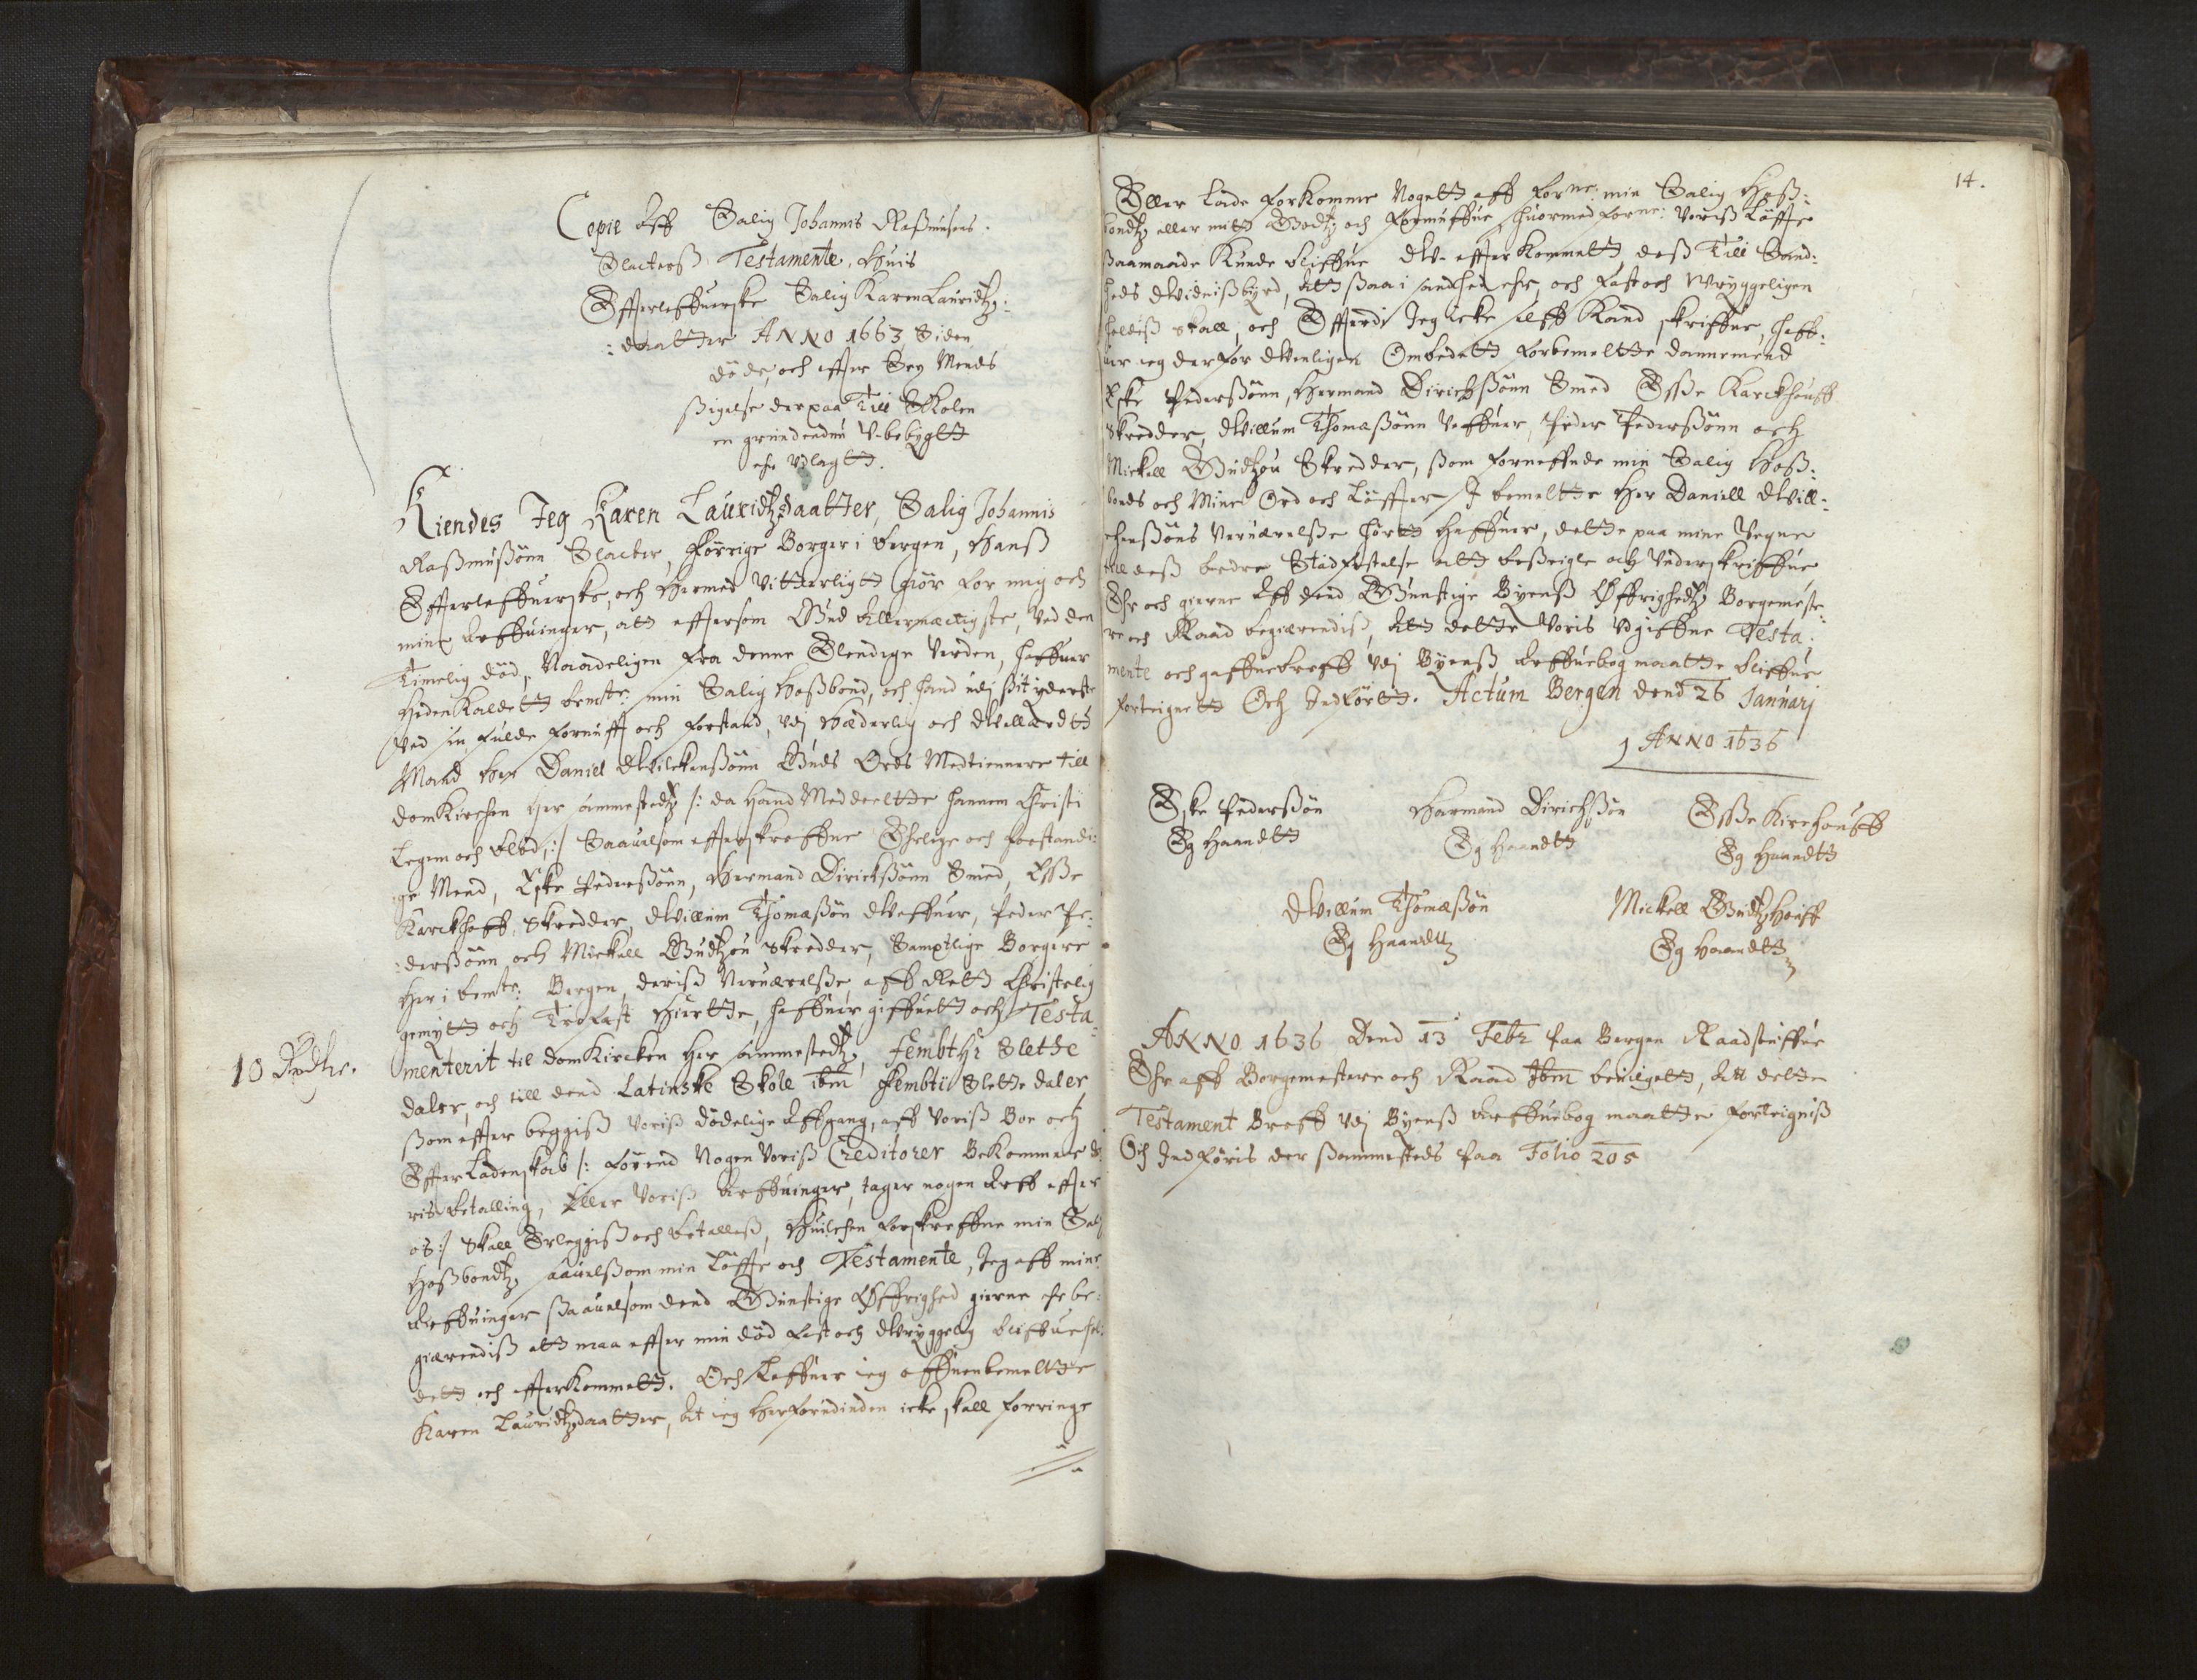 Copie Aff Salig Johannis Rasmusens.
Slacters Testamente, Huis
Effterleffuerske Salig Karen Lauridtz:
:daatter ANNO 1663 Siden
døde, och effter Sex Mends
sigelse der paa Till Skolen
en grund endnu V-bebygtt
ehr Vdlagtt.
Kiendes Jeg Karen Lauridtzdaatter, Salig Johannis
Rasmussønn Slacter, Forrige Borger i Bergen, Hans
Effterleffuerske, och Hermed Vitterligtt Giør for mig och
mine Arffuinger, att efftersom Gud Allermectigste, Ved den
Timelig død, Naadeligen fra denne Elendige Verden, haffuer
Heden Kaldett bemte: min Salig Hosbond, och hand udj sit yderste
Ved sin fulde fornufft och forstand, Vdj Hæderlig och Wellærdtt
Mand Her Daniel Willckenssønn Guds Ords Medtiennere till
domKirchen Her sammestedtz /: da Hand Meddeeltte hannem Christi
Legem och Blod, :/ Saauelsom effterskreffne Ehrlige och forstandi:
ge Mend, Eske Pederssønn, Hermand Dirichssønn Smed, Esse
Karckhoff Skredder, Willum Thomassøn Weffuer, Peder Pe:
:derssønn, och Mickell Gudtzou Skredder, Samptlige Borgere
Her i bemte: Bergen, deris Neruærelsse, aff Rett Christelig
gemytt och Trofast Hiertte, haffuer giffuett och Testa:
10 Rdlr.
menterit til domKircken Her sammestedtz, fembthi Slethe
daler, och till dend Latinske Skole ibm fembtii Slette daler
som effter begges Voris dødelige Affgang, aff Voris Boe och
Effterladenskab /: førend Nogen Voris Creditorer BeKommer de:
ris betalling, Eller Voris Arffuinger, tager nogen Arff effter
os :/ Skall Erleggis och betallis, Huilchen forskreffne min Salig
Hosbondtz, saauelsom min Løffte och Testamente, Jeg aff mine
Arffuinger saauelsom dend Gunstige Øffrighed gierne ehr be:
giærendis att maa effter min død fast och Wryggelig bliffue hol:
dett och effterkommett. Och Loffuer ieg offuenbemeltte
Karen Lauridtzdaatter, At ieg Herforudinden icke skall forringe
14.
Eller lade forkomme Nogett aff forne: min Salig Hos:
bondtz eller mitt Godtz och formuffue, huormed forne: Voris Løffte
saamaade Kunde bliffue Weffterkommett des Till Sand:
heds Widnisbyrd, Att saa i sandhed ehr, och fast och Wryggeligen
holdis skall, och Efftterdj Jeg icke self Kand skriffue, haff:
uer ieg derfor Wenligen Ombedett forbemeltte dannemend
Eske Pederssønn, Hermand Dirichssønn Smed Esse Karckhouff
Skredder, Willum Thomassønn Veffuer, Peder Pederssønn och
Mickell Gudtzou Skredder, som forneffnde min Salig Hos:
bonds och Mine Ord och Løffter, I bemeltte Her Daniell Will:
chenssøns Neruærelsse hørtt Haffuer, dette paa mine Vegne
till des bedre Stadfestelse att besseigle och Underskriffue
Ehr och gierne Aff dend Gunstige Byens Øffrighedtz Borgemeste:
re och Raad begiærendis, Att dette Voris Vdgiffne Testa:
mente och gaffuebreff Vdj Byens Arffuebog maatte bliffue
forteignett Och Indførtt. Actum Bergen dend 26 Januarj
ANNO 1636
Eske Pederssøn
Eg Haandtt
Harmand Dirichssøn
Eg Haandtt
Esse Kirchouff
Eg Haandtt
Willum Thomassøn
Eg Haandtt
Mickell Gudtzhouff
Eg Haandtt
ANNO 1636 Dend 13 Febr paa Bergen Raadstuffue
Ehr aff Borgemestere och Raad Ibm beuilgett, Att dette
Testament Breff Vdj Byens Arffuebog maatte forteignis
Och Indføris der sammesteds paa Folio 205